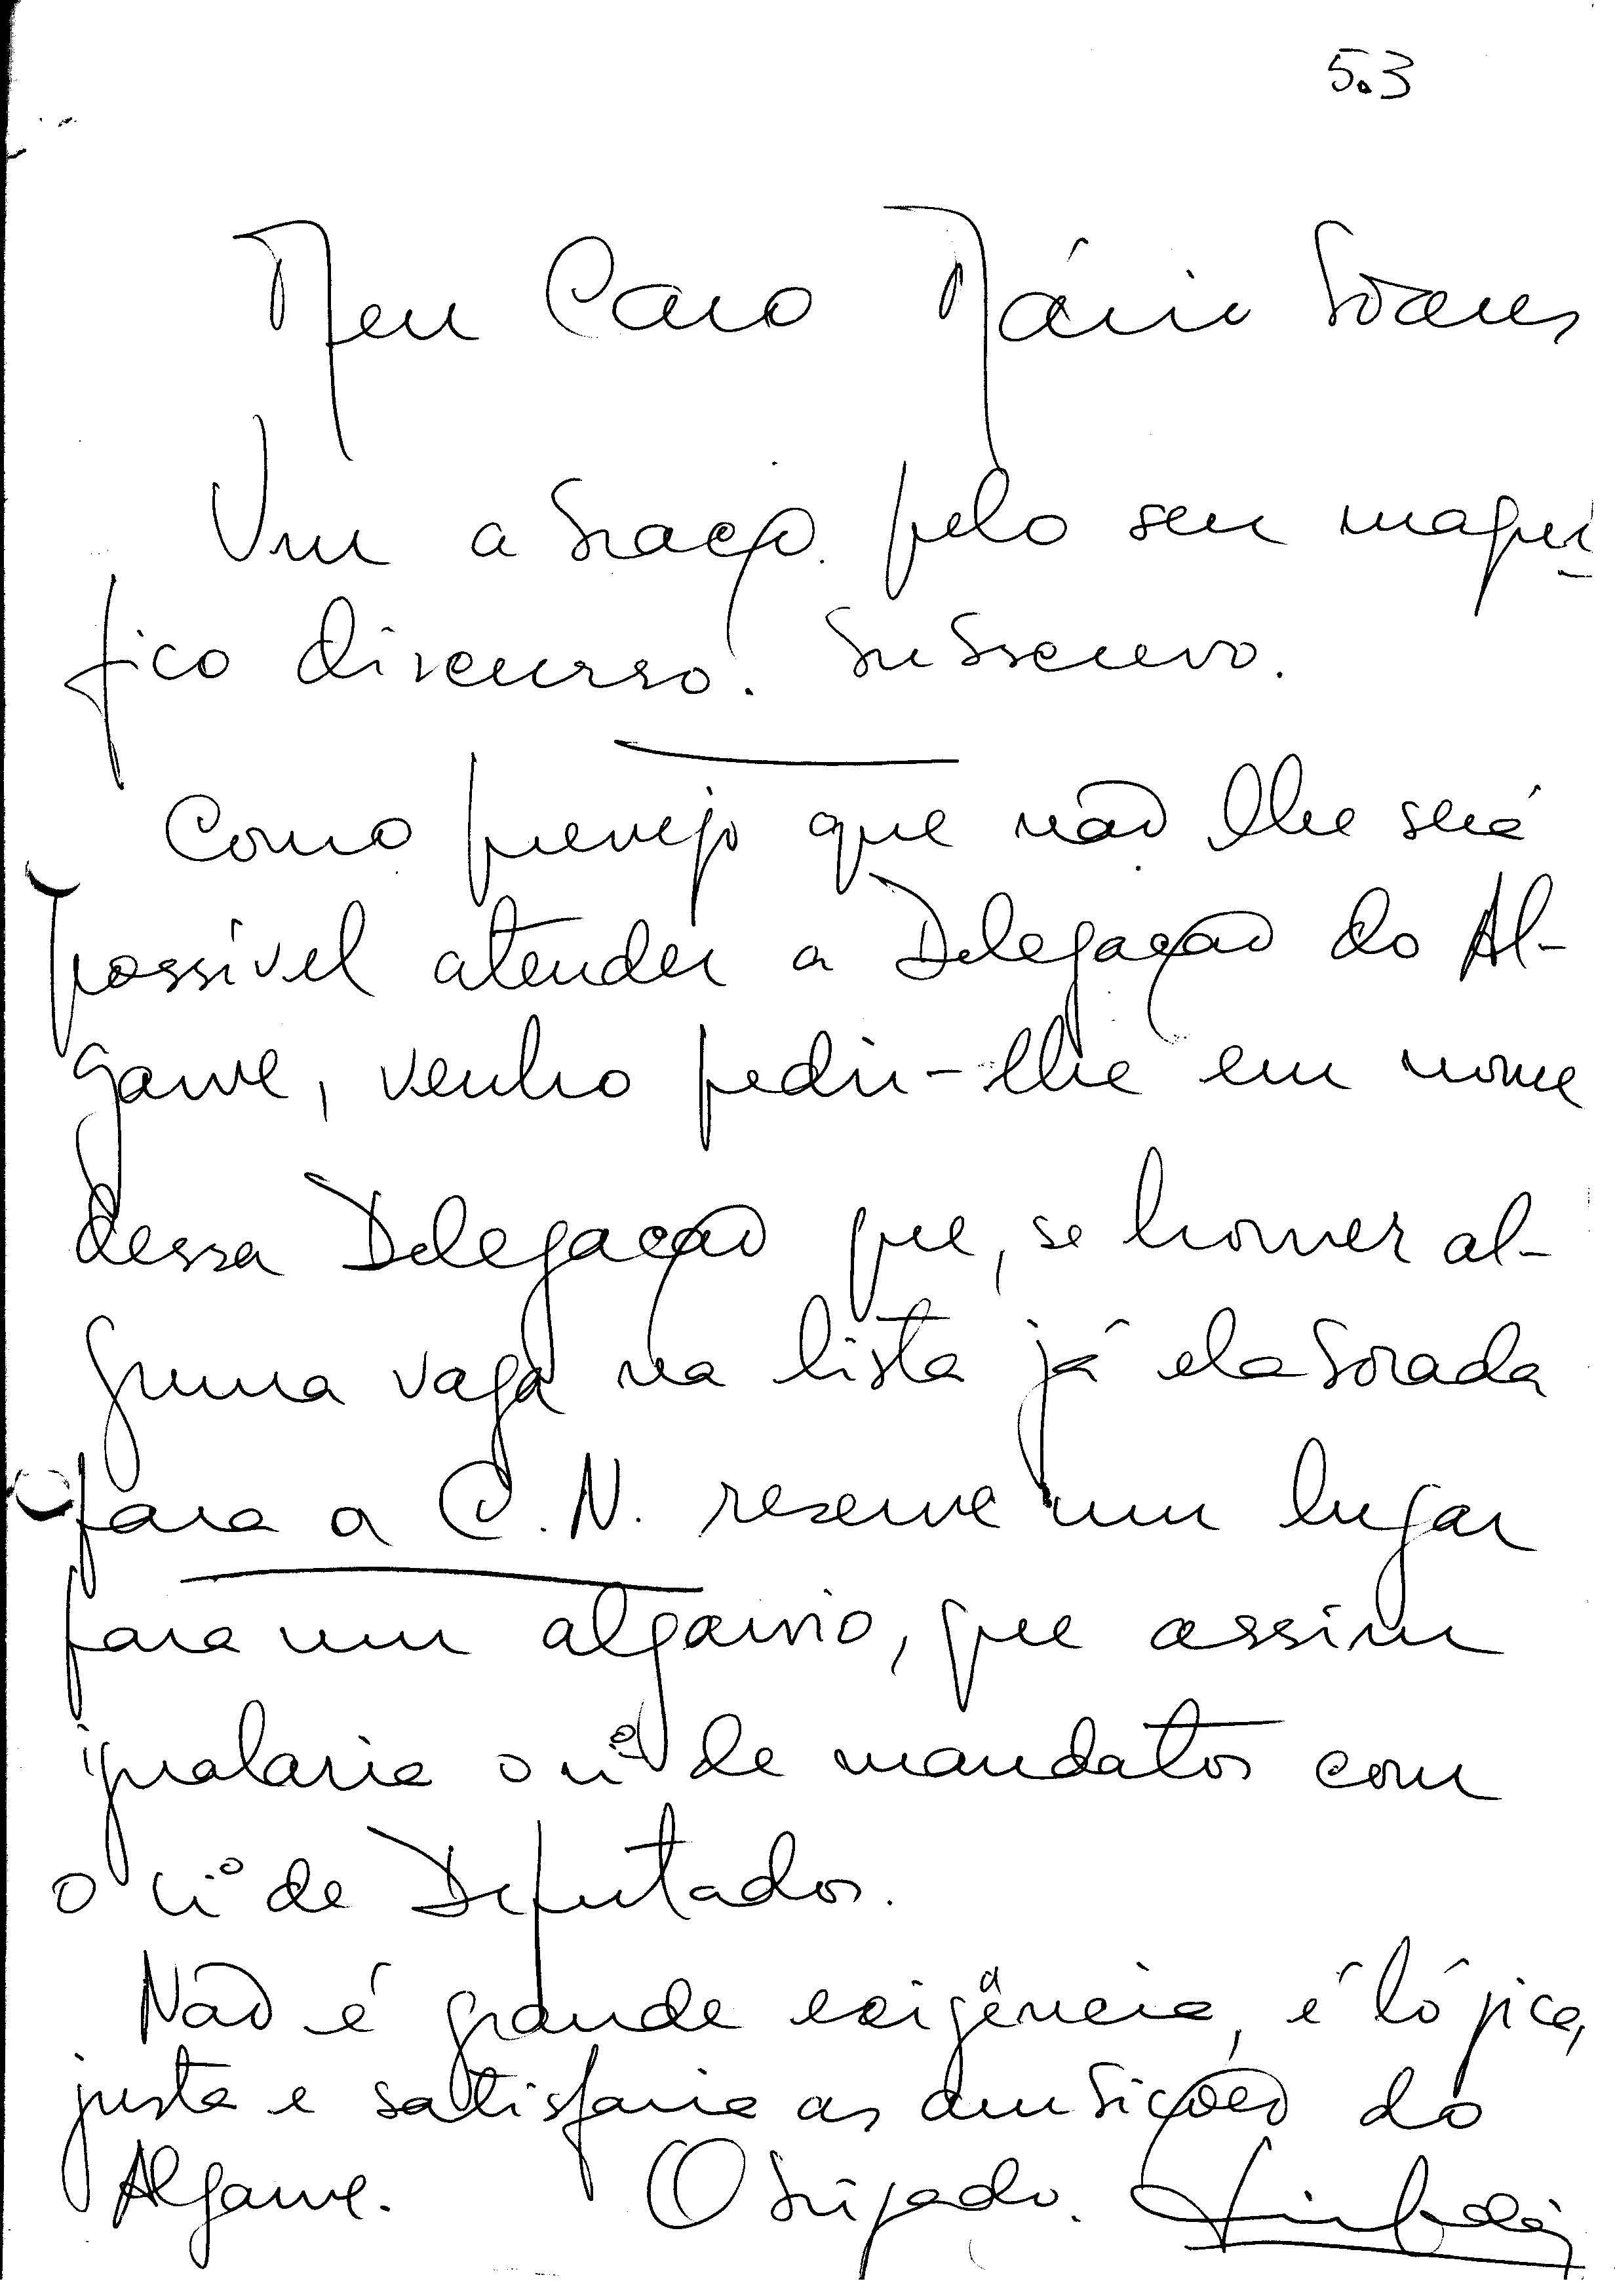 5.3
Meu Caro Mário Soares
Um abraço pelo seu magní-
fico discurso. Subscrevo.
Como prevejo que não lhe será
possível atender a Delegação do Al-
garve, venho pedir-lhe em nome
dessa Delegação que, se houver al-
guma vaga na lista já elaborada
para a C.N. reserve um lugar
para um algarvio, que assim
igualaria o nº de mandatos com
o nº de Deputados.
Não é grande exigência, é lógica,
justa e satisfaria as ambições do
Algarve. Obrigado.